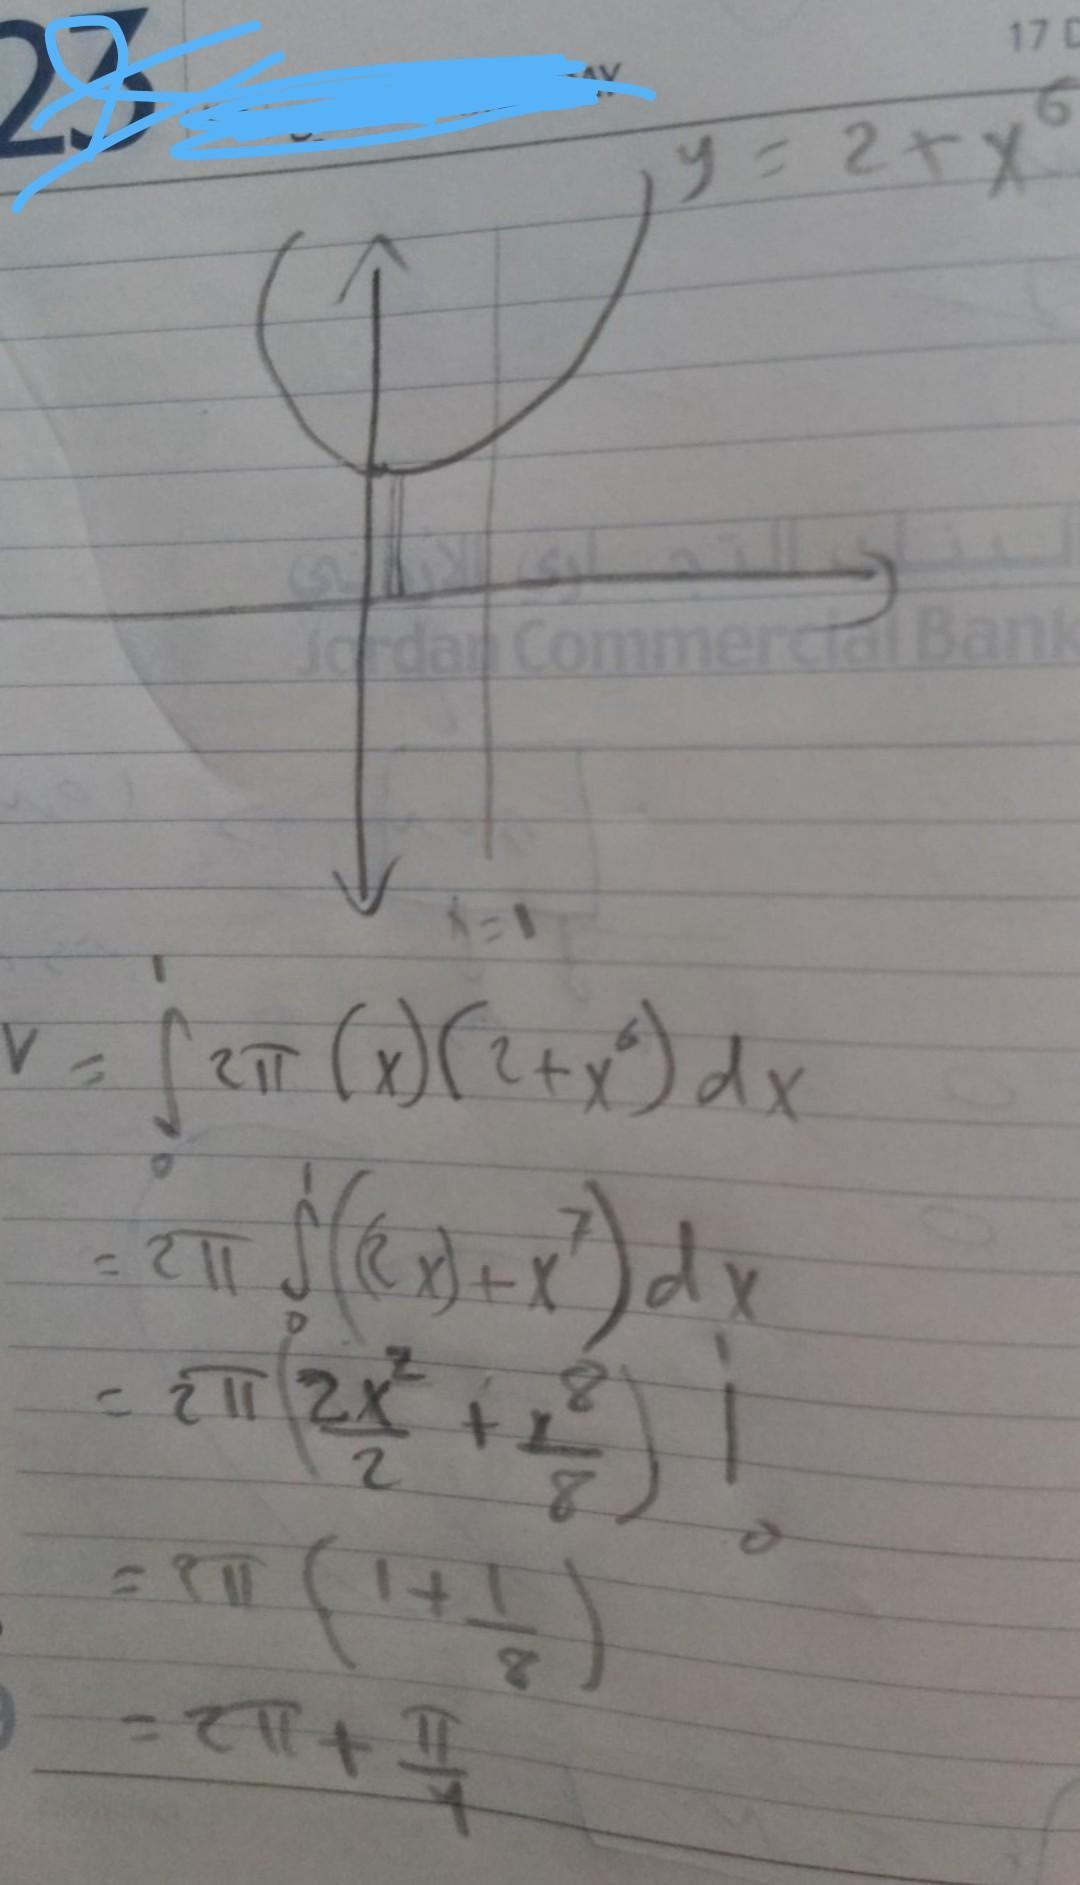 23
17 D
y = 2 + x⁶
البنك التجاري الأردني
Jordan Commercial Bank
x = 1
V = ∫₀¹ 2π (x)(2+x⁶) dx
= 2π ∫₀¹ ((2x) + x⁷) dx
= 2π (2x²/2 + x⁸/8) |₀¹
= 2π (1 + 1/8)
= 2π + π/4